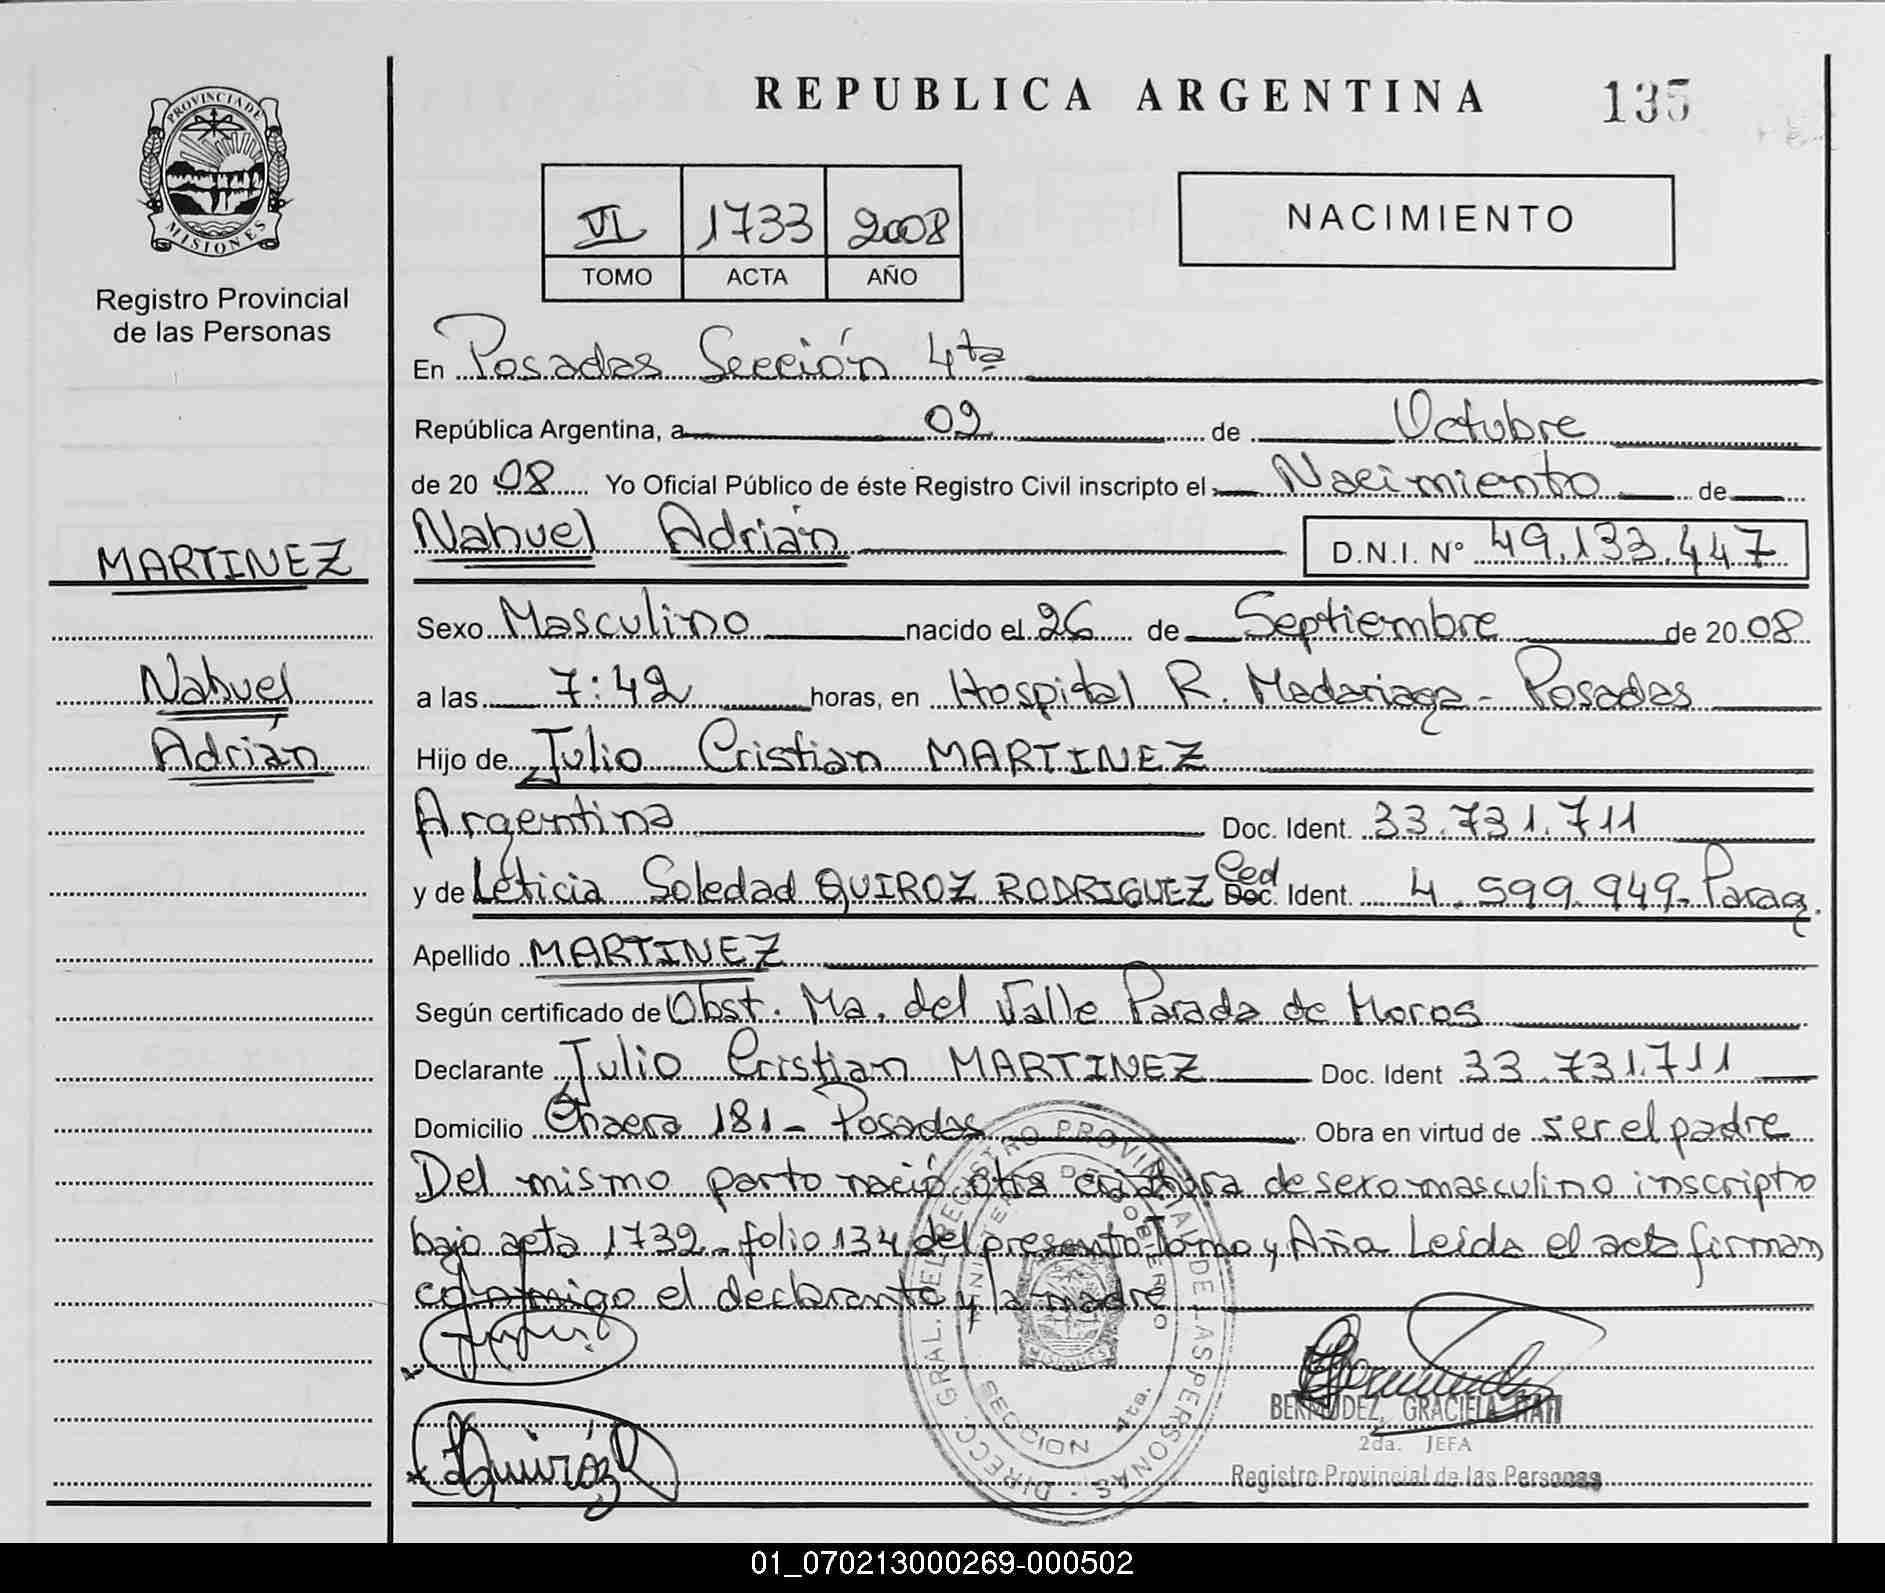 REPUBLICA ARGENTINA
135
PROVINCIA DE
MISIONES
Registro Provincial
de las Personas
VI 1733 2008
TOMO ACTA AÑO
NACIMIENTO
En Posadas Sección 4ta
República Argentina, a 09 de Octubre
de 20 08 Yo Oficial Público de éste Registro Civil inscripto el Nacimiento de
MARTINEZ
Nahuel Adrián D.N.I. Nº 49.133.447
Sexo Masculino nacido el 26 de Septiembre de 20 08
Nahuel
a las 7:42 horas, en Hospital R. Madariaga - Posadas
Adrián
Hijo de Julio Cristian MARTINEZ
Argentina Doc. Ident. 33.731.711
y de Leticia Soledad QUIROZ RODRIGUEZ Ced Doc. Ident. 4.599.949- Parag.
Apellido MARTINEZ
Según certificado de Obst. Ma. del Valle Parada de Moros
Declarante Julio Cristian MARTINEZ Doc. Ident 33.731.711
Domicilio 181 - Posadas Obra en virtud de ser el padre
Del mismo parto nació otra criatura de sexo masculino inscripto
bajo acta 1732 - folio 134 del presente Tomo y Año Leída el acta firman
conmigo el declarante y la madre
DIRECC. GRAL. DEL REGISTRO PROVINCIAL DE LAS PERSONAS
MINISTERIO DE GOBIERNO
SECCION 4ta.
Quiróz
BERMUDEZ, GRACIELA
2da. JEFA
Registro Provincial de las Personas
01_070213000269-000502